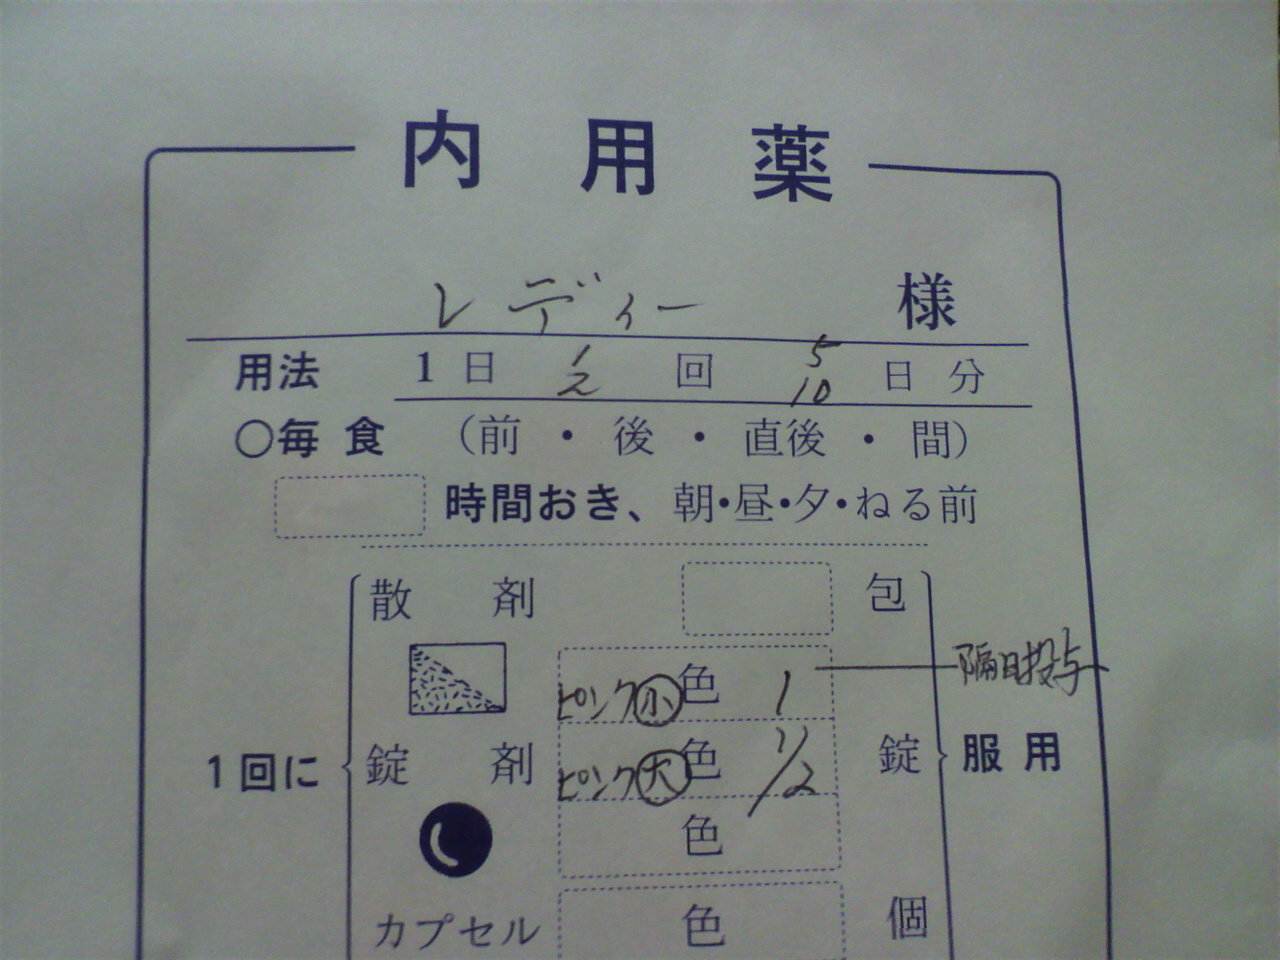 内用薬
レディー 様
用法 1日 1 回 5 日分
2 10
○毎食 (前・後・直後・間)
時間おき、朝・昼・夕・ねる前
散剤 包
ピンク小 色 1 隔日投与
1回に 錠剤 ピンク大 色 1/2 錠 服用
色
カプセル 色 個